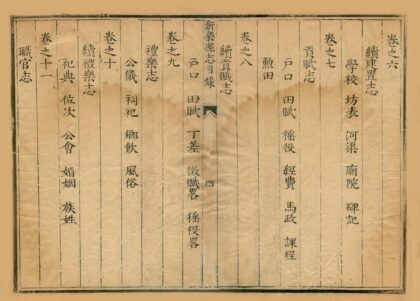 卷之六
續建置志
學校 坊表 河渠 廟院 碑記
卷之七
貢賦志
戶口 田賦 徭役 經費 馬政 課程
勲田
卷之八
續貢賦志
新樂縣志目錄
四
戶口 田賦 丁差 徵賦畧 徭役畧
卷之九
禮樂志
公儀 祠祀 鄉飲 風俗
卷之十
續禮樂志
祀典 位次 公會 婚姻 族姓
卷之十一
職官志